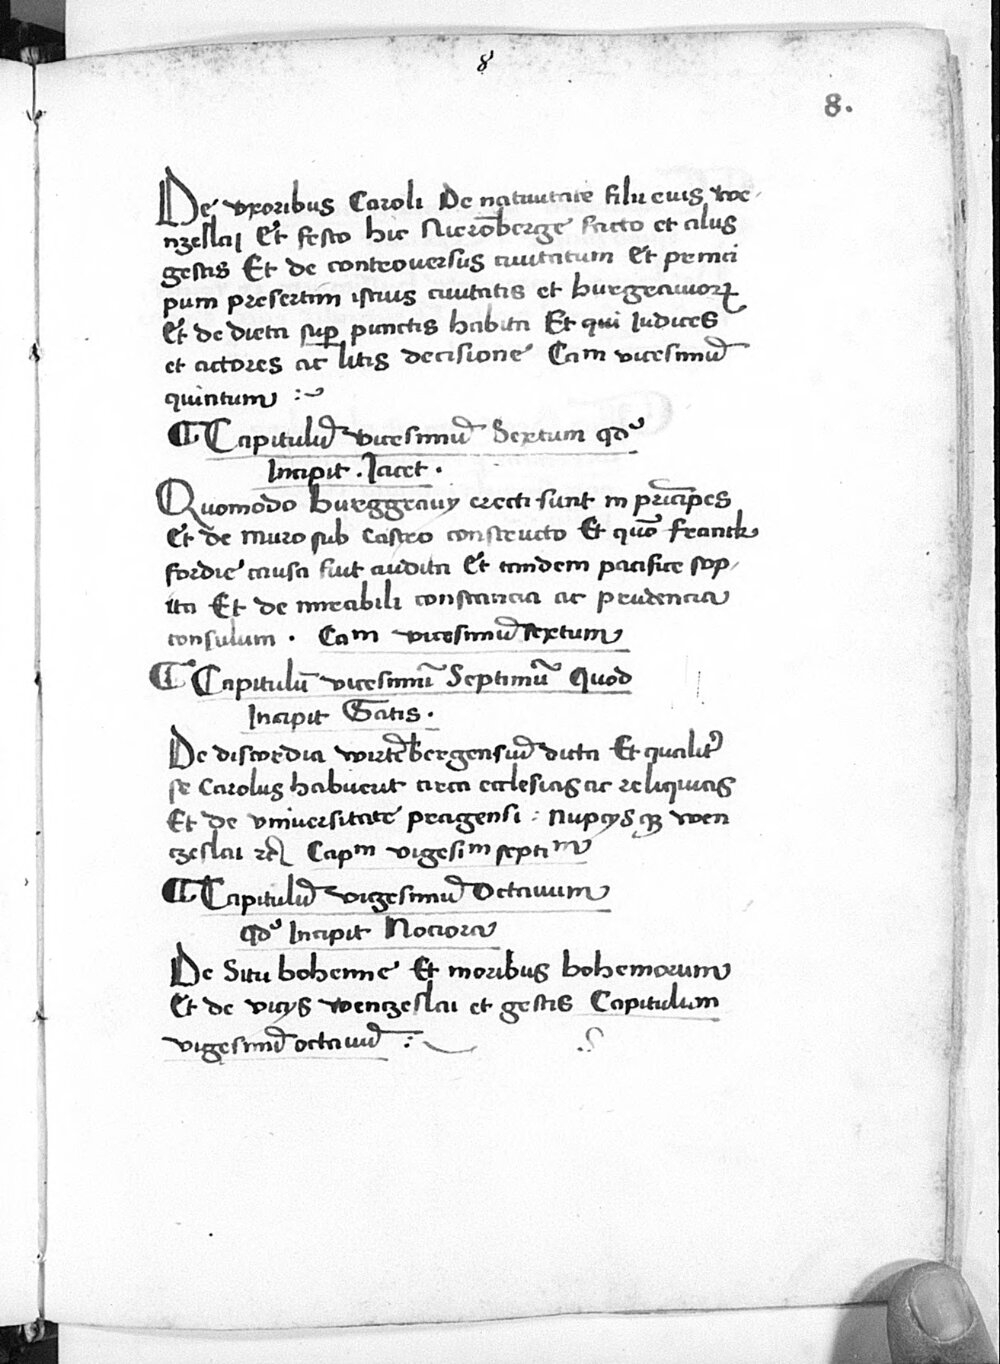 8
8.
De vxoribus Caroli De natiuitate filii eius we
nzeslai Et festo hic Nierōberge facto et alijs
gestis Et de controuersijs ciuitatum Et princi
pum presertim istius ciuitatis et burgrauiorꝝ
Et de dieta suꝑ punctis habita Et qui Iudices
et actores ac litis decisione Caᵐ vicesimū
quintum :~
¶ Capitulū vicesimū Sextum qd
Incipit . Iacet .
Quomodo burggrauij erecti sunt in prīcipes
Et de muro sub castro constructo Et quō franck
fordie causa fuit audita Et tandem pacifice sop
ita Et de mirabili constancia ac prudencia
consulum . Caᵐ vicesimū sextum
¶ Capitulū vicesimū Septimū Quod
Incipit Satis .
De discordia wirtēbergensiū dicta Et qualiť
se Carolus habuerit circa ecclesias ac reliquias
Et de vniuersitate pragensi : nupcijsqꝫ wen
czeslai ꝛc Capᵐ vigesiᵐ septiᵐ
¶ Capitulū vigesimū Octauum
qd Incipit Nociora
De Situ bohemie Et moribus bohemorum
Et de vicijs wenczeslai et gestis Capitulum
vigesimū octauū :~